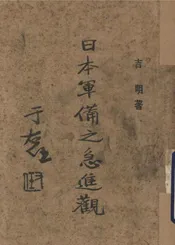 吉明著
日本軍備之急進觀
于右任